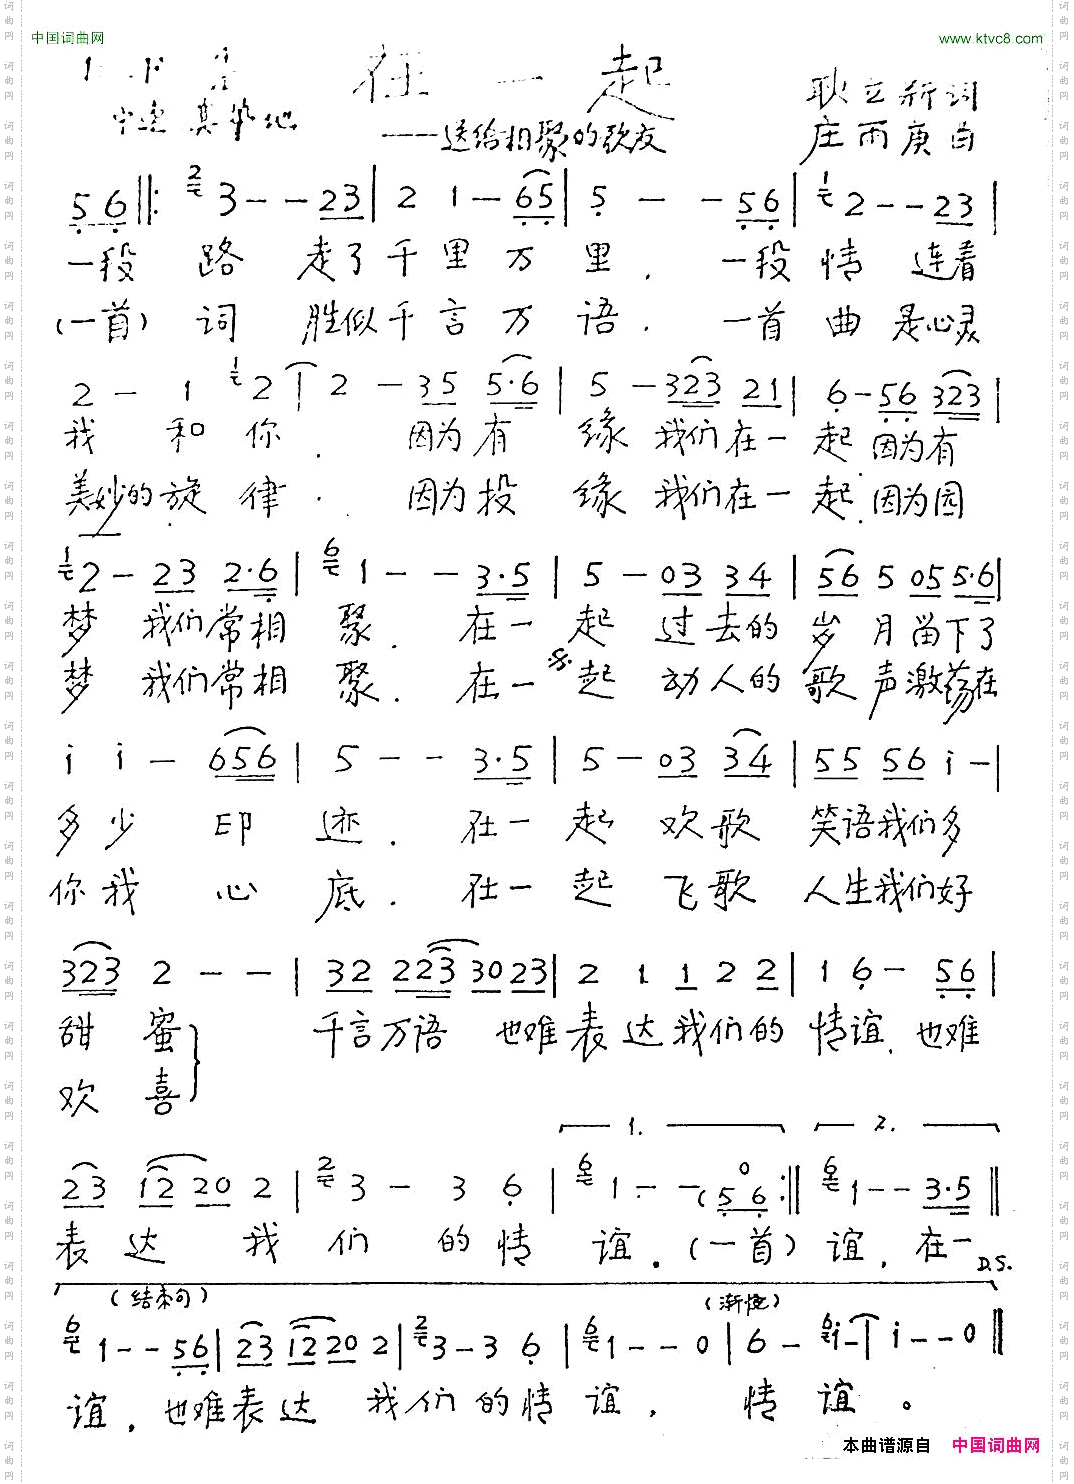 中国词曲网
www.ktvc8.com
在一起
耿立新词
中速 真挚地
——送给相聚的歌友
庄雨庚曲
5 6 ‖: 3 - - 2 3 | 2 1 - 6 5 | 5 - - 5 6 | 2 - - 2 3 |
一段 路 走了千里万里. 一段情 连着
(一首) 词 胜似千言万语. 一首曲 是心灵
2 - 1 2 | 2 - 3 5 5·6 | 5 - 3 2 3 2 1 | 6 - 5 6 3 2 3 |
我 和你. 因为有 缘 我们在一起 因为有
美妙的旋律. 因为投 缘 我们在一起. 因为园
2 - 2 3 2·6 | 1 - - 3·5 | 5 - 0 3 3 4 | 5 6 5 0 5 5·6 |
梦 我们常相聚. 在一起 过去的岁月留下了
梦 我们常相聚. 在一起 动人的歌声激荡在
i i - 6 5 6 | 5 - - 3·5 | 5 - 0 3 3 4 | 5 5 5 6 i - |
多少 印 迹. 在一起 欢歌 笑语我们多
你我 心 底. 在一起 飞歌 人生我们好
3 2 3 2 - - | 3 2 2 2 3 3 0 2 3 | 2 1 1 2 2 | 1 6 - 5 6 |
甜 蜜 千言万语 也难表达我们的情谊. 也难
欢 喜
1. 2.
2 3 1 2 2 0 2 | 3 - 3 6 | 1 - - (5 6 :‖ 1 - - 3·5 ‖
表达 我们的情谊. (一首) 谊. 在一
D.S.
(结束句) (渐慢)
1 - - 5 6 | 2 3 1 2 2 0 2 | 3 - 3 6 | 1 - - 0 | 6 - i - | i - - 0 ‖
谊. 也难表达 我们的情谊. 情谊。
本曲谱源自 中国词曲网